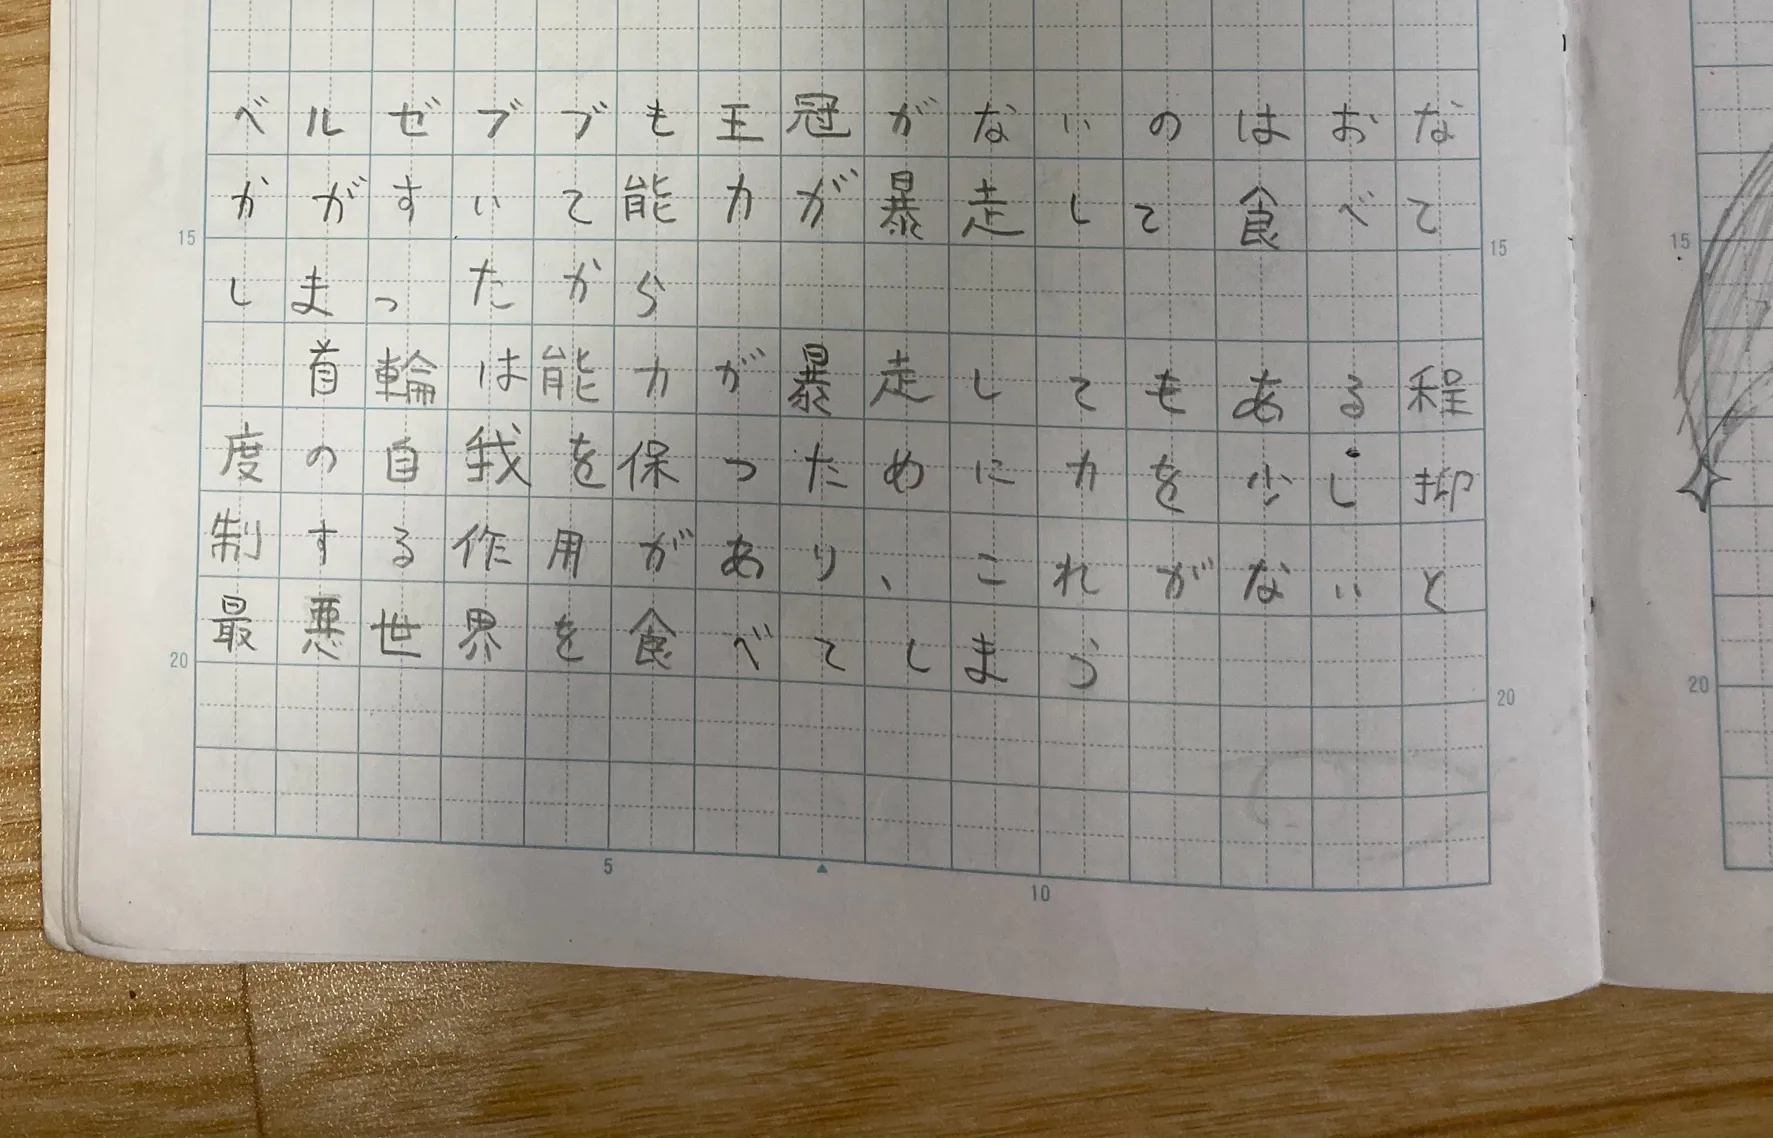 ベルゼブブも王冠がないのはおな
かがすいて能力が暴走して食べて
しまったから
首輪は能力が暴走してもある程
度の自我を保つために力を少し抑
制する作用があり、これがないと
最悪世界を食べてしまう
15
15
20
20
5
10
15
20